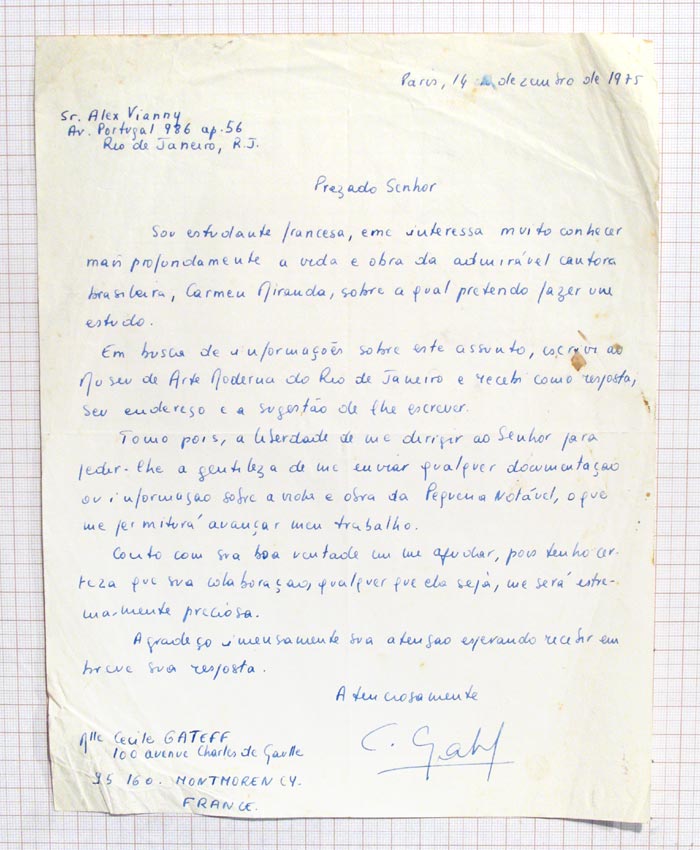 Paris, 14 dezembro de 1975
Sr. Alex Vianny
Av. Portugal 986 ap. 56
Rio de Janeiro, R.J.
Prezado Senhor
Sou estudante francesa, e me interessa muito conhecer
mais profundamente a vida e obra da admirável cantora
brasileira, Carmen Miranda, sobre a qual pretendo fazer um
estudo.
Em busca de informações sobre este assunto, escrevi ao
Museu de Arte Moderna do Rio de Janeiro e recebi como resposta,
seu endereço e a sugestão de lhe escrever.
Tomo pois, a liberdade de me dirigir ao Senhor para
pedir-lhe a gentileza de me enviar qualquer documentação
ou informação sobre a vida e obra da Pequena Notável, o que
me permitirá avançar meu trabalho.
Conto com sua boa vontade em me ajudar, pois tenho cer-
teza que sua colaboração, qualquer que ela seja, me será estre-
mamente preciosa.
Agradeço imensamente sua atenção esperando receber em
breve sua resposta.
Atenciosamente
C. Gateff
Mlle Cecile GATEFF
100 avenue Charles de Gaulle
95 160. MONTMORENCY.
FRANCE.